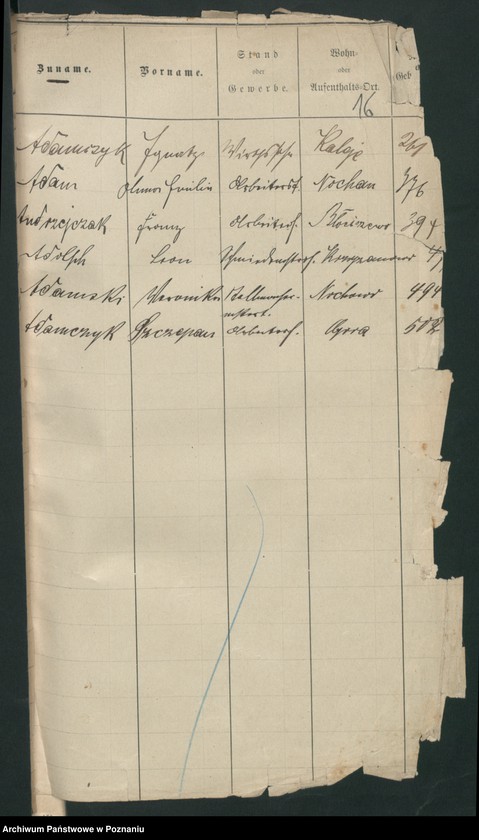 Zuname. Vorname. Stand oder Gewerbe. Wohn- oder Aufenthalts-Ort. Geb
16
Adamczyk Ignatz Kaleje 261
Adam Emilie Arbeiterst. Nochau 376
Andrzejczak Franz Arbeiters. 394
Adolph Leon Schmiedemstrs. Krzyzanowo
Adamski Veronika Nochowo 494
mstert.
Adamczyk Szczepan Arbeiters. Ogora 502
Archiwum Państwowe w Poznaniu